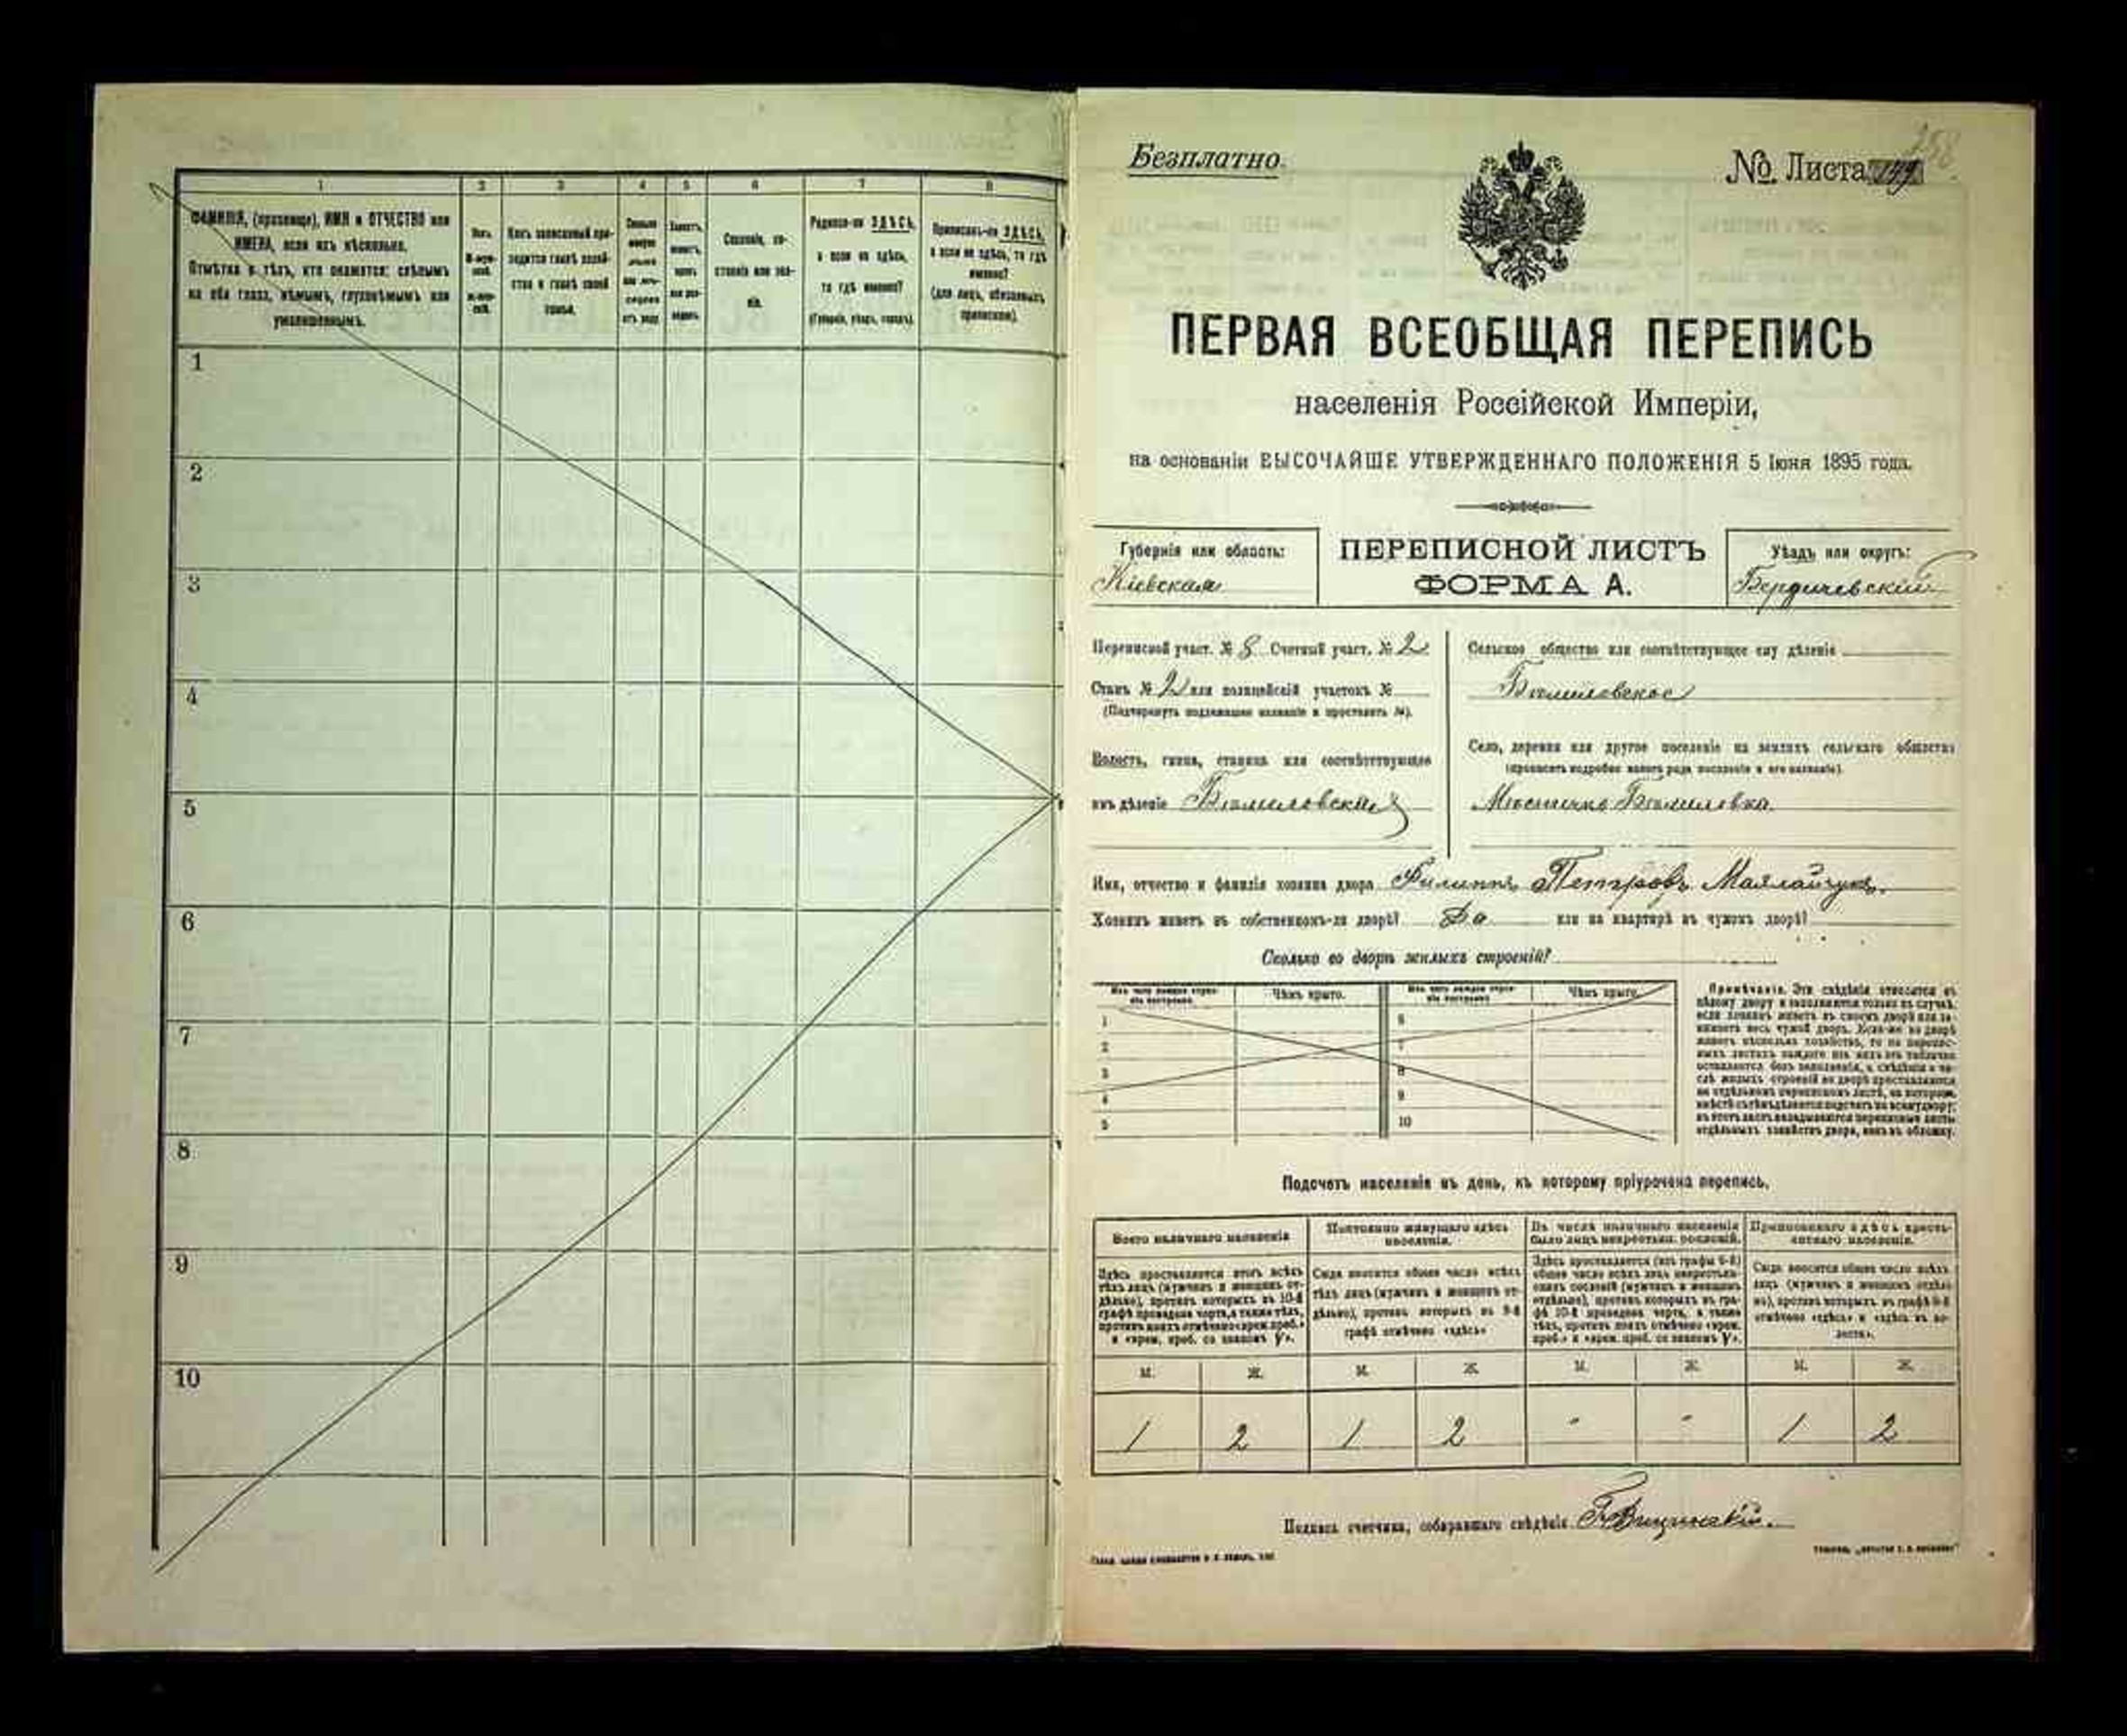 1 2 3 4 5 6 7 8
ФАМИЛІЯ, (прозвище), ИМЯ и ОТЧЕСТВО или
ИМЕНА, если ихъ нѣсколько.
Отмѣтка о тѣхъ, кто окажется: слѣпымъ
на оба глаза, нѣмымъ, глухонѣмымъ или
умалишеннымъ.
Какъ записанный при-
ходится главѣ хозяй-
ства и главѣ своей
семьи.
Сословіе, со-
стояніе или зва-
ніе.
Родился-ли ЗДѢСЬ,
а если не здѣсь,
то гдѣ именно?
(Губернія, уѣздъ, городъ).
Приписанъ-ли ЗДѢСЬ,
а если не здѣсь, то гдѣ
именно?
(для лицъ, обязанныхъ
припискою).
1
2
3
4
5
6
7
8
9
10
Безплатно
№ Листа
ПЕРВАЯ ВСЕОБЩАЯ ПЕРЕПИСЬ
населенія Россійской Имперіи,
на основаніи ВЫСОЧАЙШЕ УТВЕРЖДЕННАГО ПОЛОЖЕНІЯ 5 Іюня 1895 года.
Губернія или область:
Кіевская
ПЕРЕПИСНОЙ ЛИСТЪ
ФОРМА А.
Уѣздъ или округъ:
Бердичевскій
Переписной участ. № 8 Счетный участ. № 2
Станъ № 2 или полицейскій участокъ №
(Подчеркнуть подлежащее названіе и проставить №).
Волость, гмина, станица или соотвѣтствующее
имъ дѣленіе
Сельское общество или соотвѣтствующее ему дѣленіе
Село, деревня или другое поселеніе на земляхъ сельскаго общества
(прописать подробно какого рода поселеніе и его названіе).
Имя, отчество и фамилія хозяина двора Филиппъ Петровъ
Хозяинъ живетъ въ собственномъ-ли дворѣ? Да или на квартирѣ въ чужомъ дворѣ?
Сколько во дворѣ жилыхъ строеній?
Чѣмъ крыто. Чѣмъ крыто.
1 6
2 7
3 8
4 9
5 10
Примѣчаніе. Эти свѣдѣнія относятся къ
цѣлому двору и заполняются только въ случаѣ,
если хозяинъ живетъ въ своемъ дворѣ или за-
нимаетъ весь чужой дворъ. Если-же во дворѣ
живетъ нѣсколько хозяйствъ, то на перепис-
ныхъ листахъ каждаго изъ нихъ эта табличка
оставляется безъ заполненія, а свѣдѣнія о чи-
слѣ жилыхъ строеній во дворѣ проставляются
на отдѣльномъ переписномъ листѣ, на которомъ
Подсчетъ населенія въ день, къ которому пріурочена перепись.
Всего наличнаго населенія
Постоянно живущаго здѣсь
населенія.
Въ числѣ наличнаго населенія
было лицъ некрестьян. сословій.
Приписаннаго здѣсь кресть-
янскаго населенія.
Здѣсь проставляется итогъ всѣхъ
тѣхъ лицъ (мужчинъ и женщинъ от-
дѣльно), противъ которыхъ въ 10-й
графѣ проведена черта, а также тѣхъ,
противъ коихъ отмѣчено «врем. преб.»
и «врем. преб. со знакомъ V».
Сюда вносится общее число всѣхъ
тѣхъ лицъ (мужчинъ и женщинъ от-
дѣльно), противъ которыхъ въ 9-й
графѣ отмѣчено «здѣсь»
Здѣсь проставляется (изъ графы 6-й)
общее число всѣхъ лицъ некрестьян-
скихъ сословій (мужчинъ и женщинъ
отдѣльно), противъ которыхъ въ гра-
фѣ 10-й проведена черта, а также
тѣхъ, противъ коихъ отмѣчено «врем.
преб.» и «врем. преб. со знакомъ V».
Сюда вносится общее число всѣхъ
лицъ (мужчинъ и женщинъ отдѣль-
но), противъ которыхъ въ графѣ 8-й
отмѣчено «здѣсь» и «здѣсь въ во-
лости».
М. Ж. М. Ж. М. Ж. М. Ж.
1 2 1 2 " " 1 2
Подпись счетчика, собиравшаго свѣдѣнія